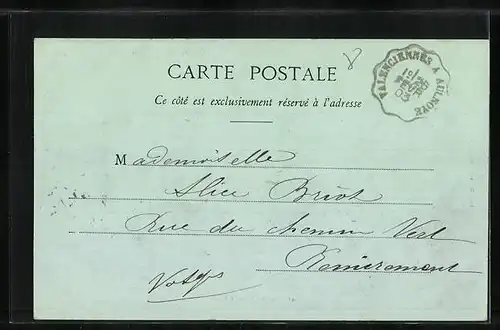 8
VALENCIENNES A AULNOYE
CARTE POSTALE
Ce côté est exclusivement réservé à l'adresse
Mademoiselle
Alice Briot
Rue du chemin Vert
Remiremont
Vosges